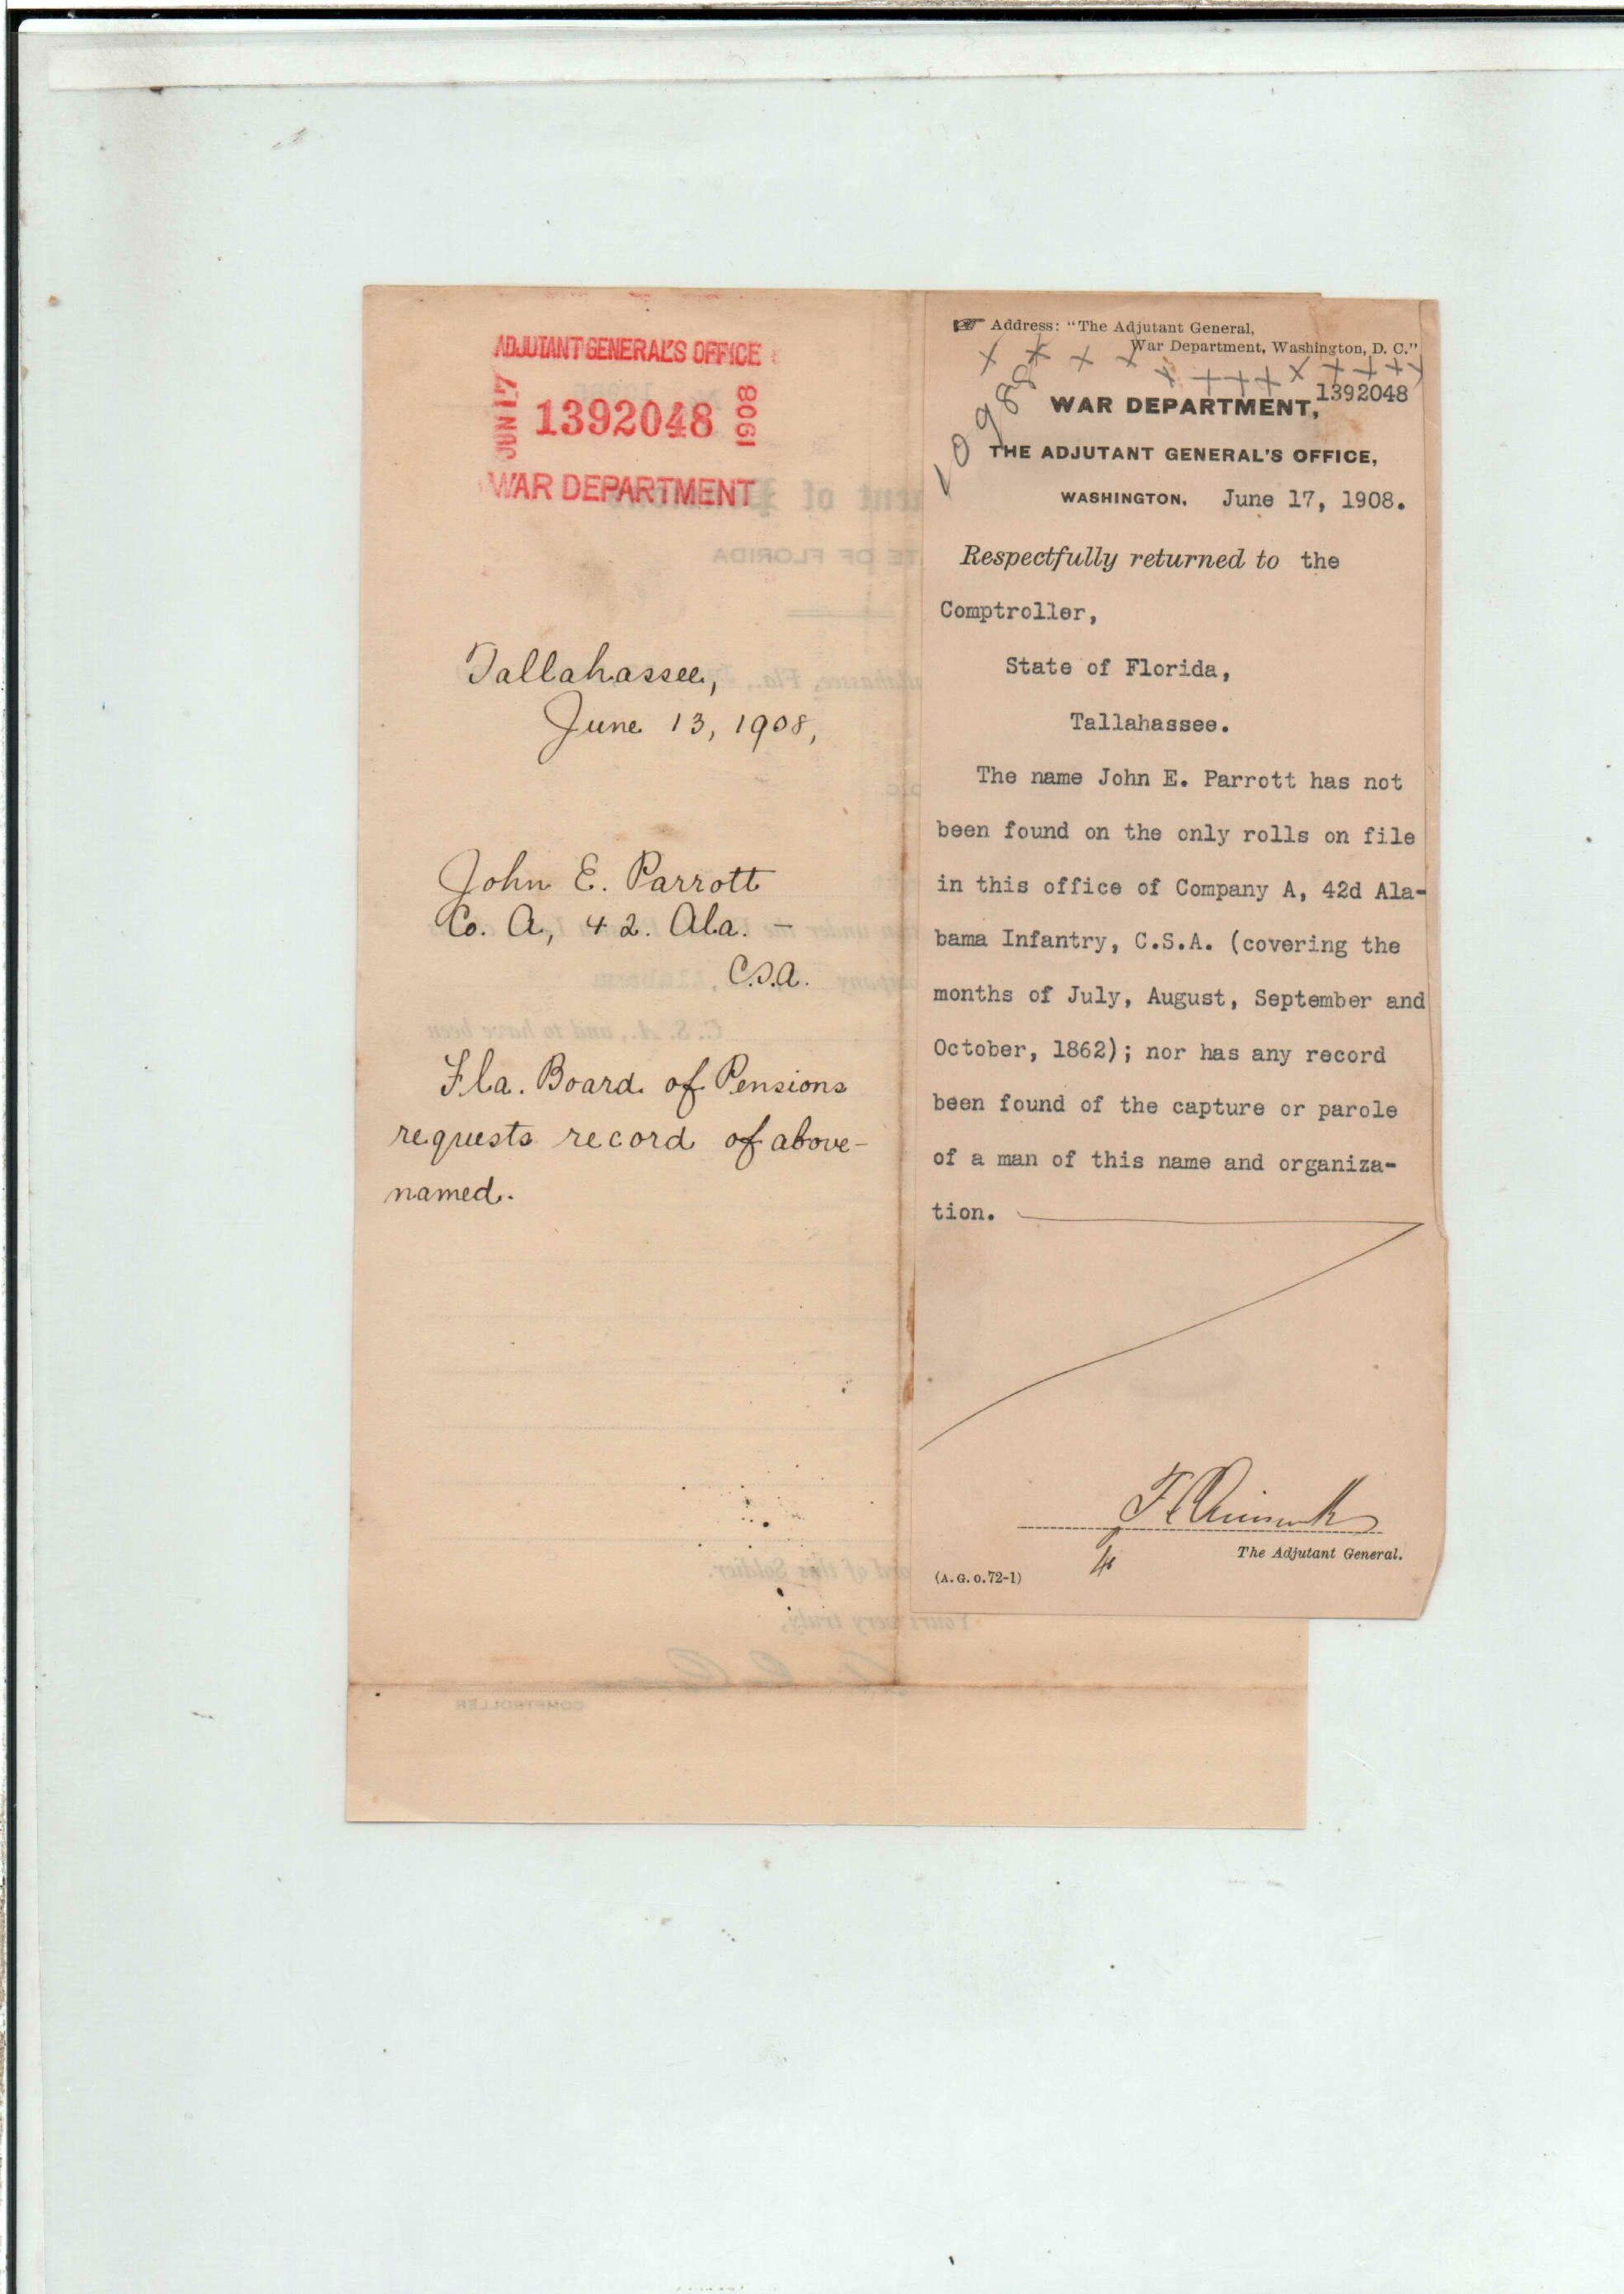 ADJUTANT GENERAL'S OFFICE
JUN 17 1392048 1908
WAR DEPARTMENT
Tallahassee,
June 13, 1908,
John E. Parrott
Co. A, 42. Ala. -
C.S.A.
Fla. Board of Pensions
requests record of above-
named.
Address: "The Adjutant General,
War Department, Washington, D. C."
1392048
10988
WAR DEPARTMENT,
THE ADJUTANT GENERAL'S OFFICE,
WASHINGTON. June 17, 1908.
Respectfully returned to the
Comptroller,
State of Florida,
Tallahassee.
The name John E. Parrott has not
been found on the only rolls on file
in this office of Company A, 42d Ala-
bama Infantry, C.S.A. (covering the
months of July, August, September and
October, 1862); nor has any record
been found of the capture or parole
of a man of this name and organiza-
tion.
The Adjutant General.
(A. G. O. 72-1)